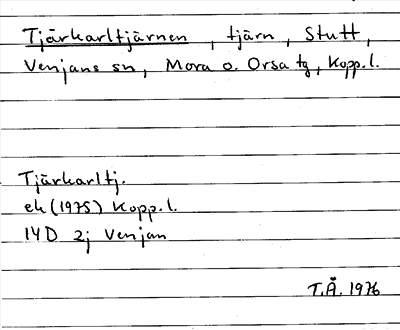 Tjärkarltjärnen, tjärn, Stutt,
Venjans sn, Mora o. Orsa tg, Kopp. l.
Tjärkarltj.
ek (1975) Kopp. l.
14D 2j Venjan
T.Ä. 1976